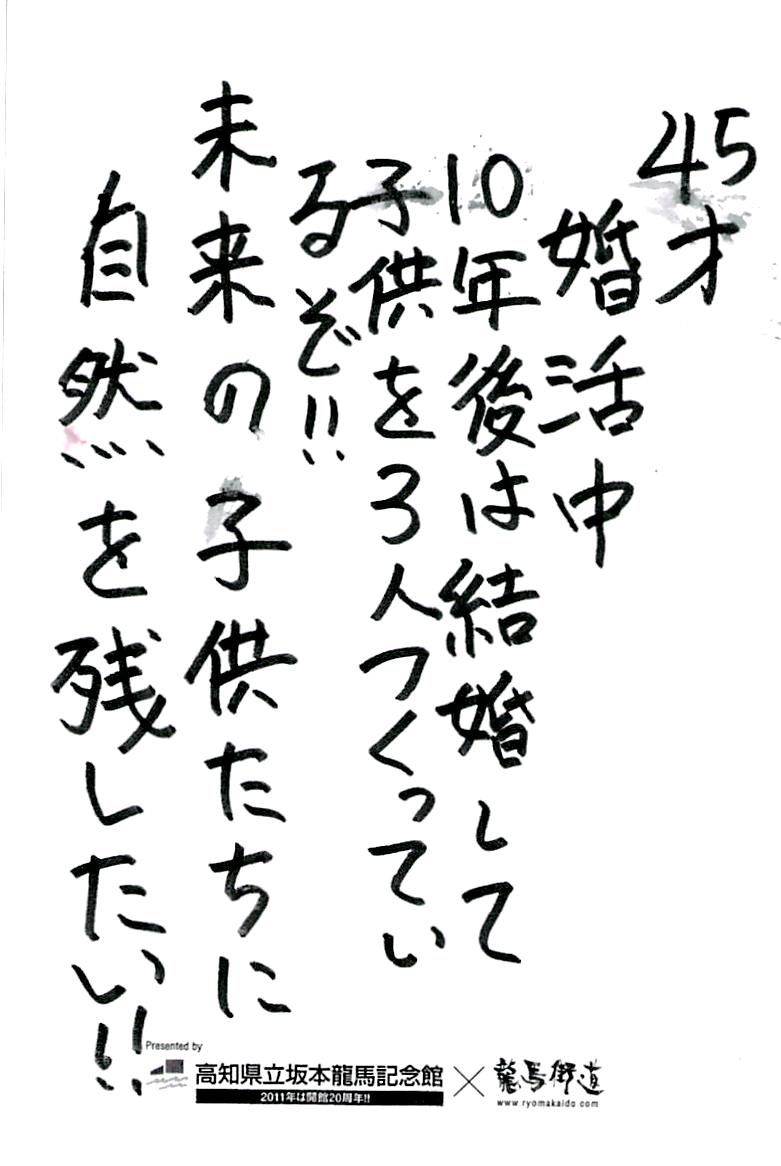 45才
婚活中
10年後は結婚して
子供を3人つくってい
るぞ!!
未来の子供たちに
自然を残したい!!
Presented by
高知県立坂本龍馬記念館 × 龍馬街道
2011年は開館20周年!!
www.ryomakaido.com